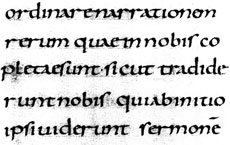 ordinare narrationem
rerum quae in nobis co
pletae sunt. sicut tradide
runt nobis qui ab initio
ipsi uiderunt sermonē